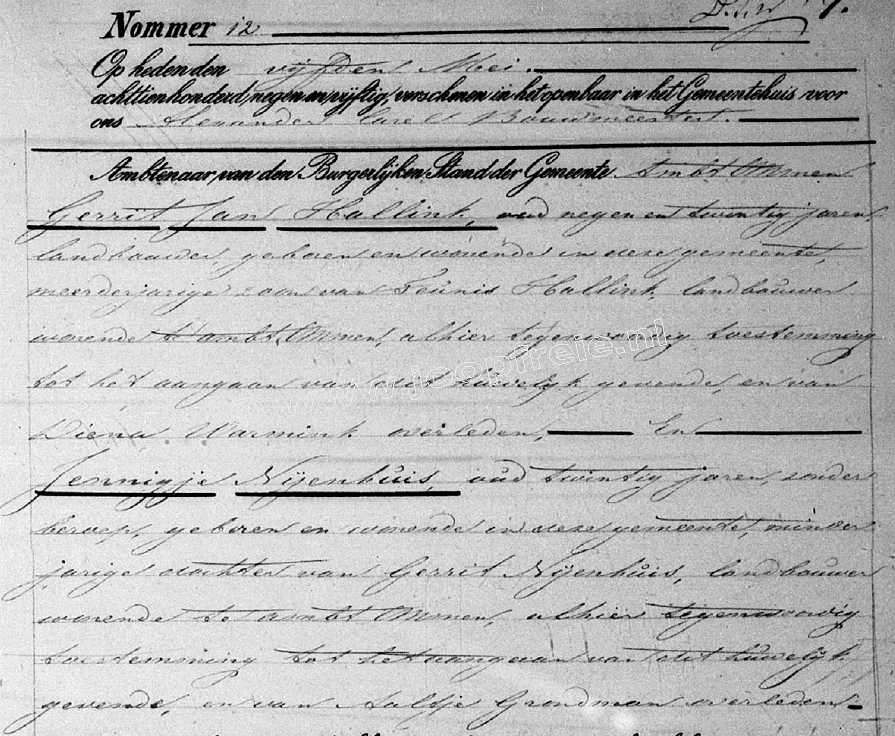 Nommer 12
Op heden den vijfden Mei
achttienhonderd, negen en vijftig, verschenen in het openbaar in het Gemeentehuis voor
ons Alexander Carel Bouwmeester.
Ambtenaar, van den Burgerlijken Stand der Gemeente Ambt Ommen
Gerrit Jan Hallink, oud negen en twintig jaren,
landbouwer, geboren en wonende in deze gemeente,
meerderjarige zoon van Teunis Hallink, landbouwer
wonende te ambt Ommen, alhier tegenwoordig toestemming
tot het aangaan van dit huwelijk gevende, en van
Diena Warmink overleden, En
Jennigje Nijenhuis, oud twintig jaren, zonder
beroep, geboren en wonende in deze gemeente, minder
jarige dochter van Gerrit Nijenhuis, landbouwer
wonende te ambt Ommen, alhier tegenwoordig
toestemming tot het aangaan van dit huwelijk
gevende, en van Aaltje Grondman overleden